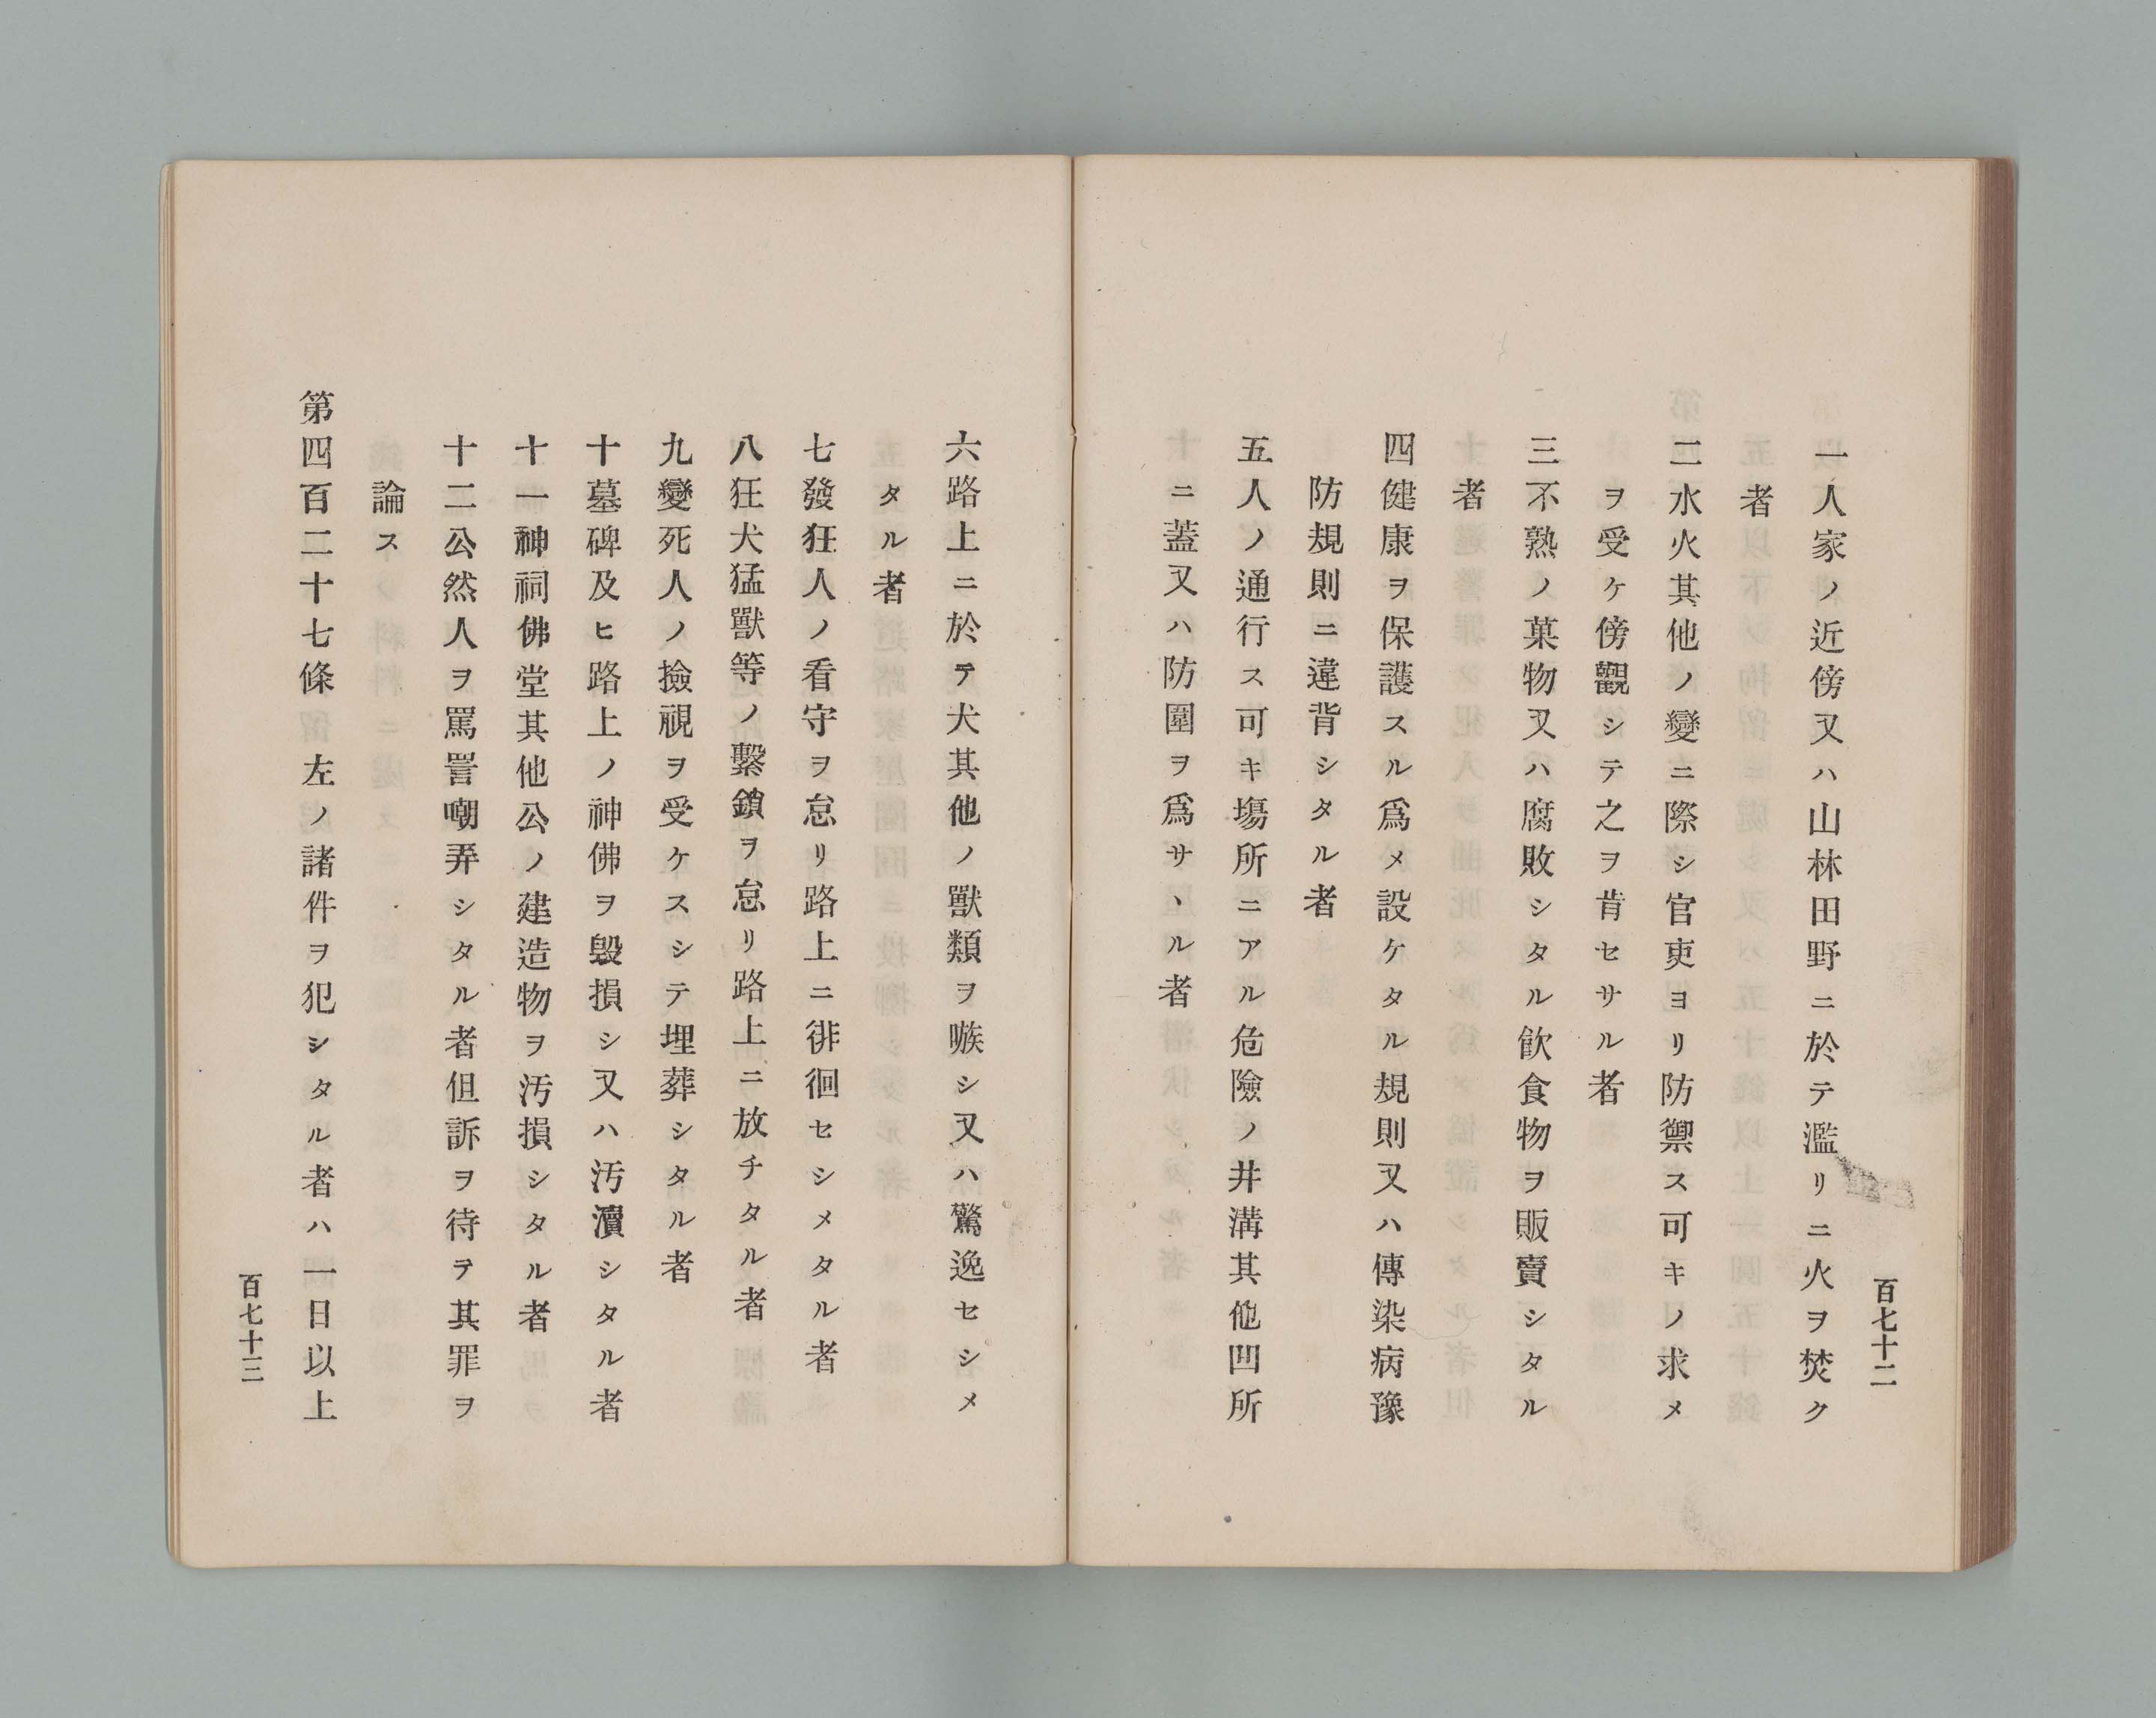 一人家ノ近傍又ハ山林田野ニ於テ濫リニ火ヲ焚ク
者
二水火其他ノ變ニ際シ官吏ヨリ防禦ス可キノ求メ
ヲ受ケ傍觀シテ之ヲ肯セサル者
三不熟ノ菓物又ハ腐敗シタル飮食物ヲ販賣シタル
者
四健康ヲ保護スル爲メ設ケタル規則又ハ傳染病豫
防規則ニ違背シタル者
五人ノ通行ス可キ塲所ニアル危險ノ井溝其他凹所
ニ蓋又ハ防圍ヲ爲サヽル者
百七十二
六路上ニ於テ犬其他ノ獸類ヲ嗾シ又ハ驚逸セシメ
タル者
七發狂人ノ看守ヲ怠リ路上ニ徘徊セシメタル者
八狂犬猛獸等ノ繫鎖ヲ怠リ路上ニ放チタル者
九變死人ノ撿視ヲ受ケスシテ埋葬シタル者
十墓碑及ヒ路上ノ神佛ヲ毀損シ又ハ汚瀆シタル者
十一神祠佛堂其他公ノ建造物ヲ汚損シタル者
十二公然人ヲ罵詈嘲弄シタル者但訴ヲ待テ其罪ヲ
論ス
第四百二十七條左ノ諸件ヲ犯シタル者ハ一日以上
百七十三